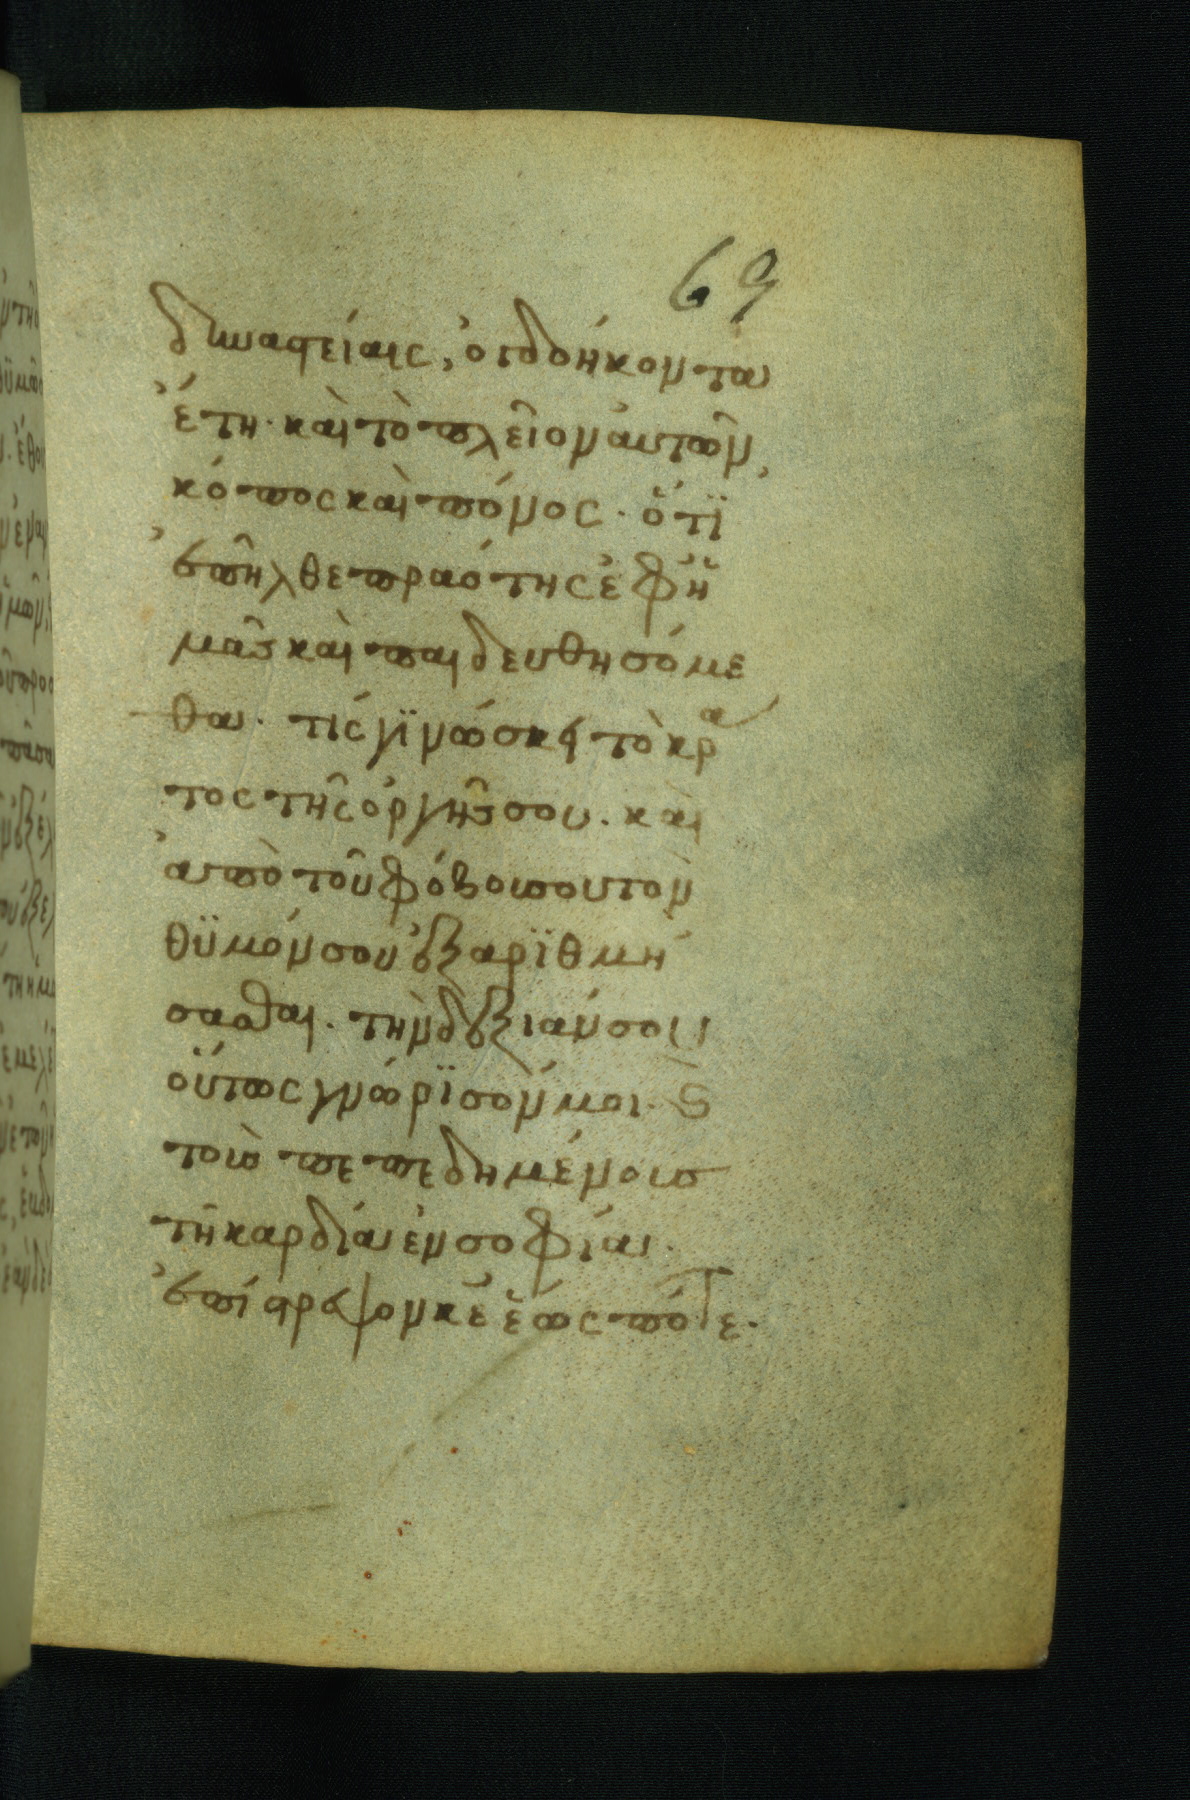 69
δυναστείαις, ὀγδοήκοντα
ἔτη· καὶ τὸ πλεῖον αὐτῶν,
κόπος καὶ πόνος· ὅτϊ
ἐπῆλθε πραότης ἐφ ἡ
μᾶς καὶ παιδευθησόμε
θα· τίς γϊνώσκει τὸ κρά
τος τῆς ὀργῆς σου· καὶ
ἀπὸ τοῦ φόβου σου τὸν
θϋμόν σου ἐξαρϊθμή
σασθαι· τὴν δεξιάν σου
οὕτως γνώρϊσόν μοι· καὶ
τοὺς πεπεδημένους
τῆ καρδίαι ἐν σοφίαι·
ἐπίστρεψον κε ἕως πότε·